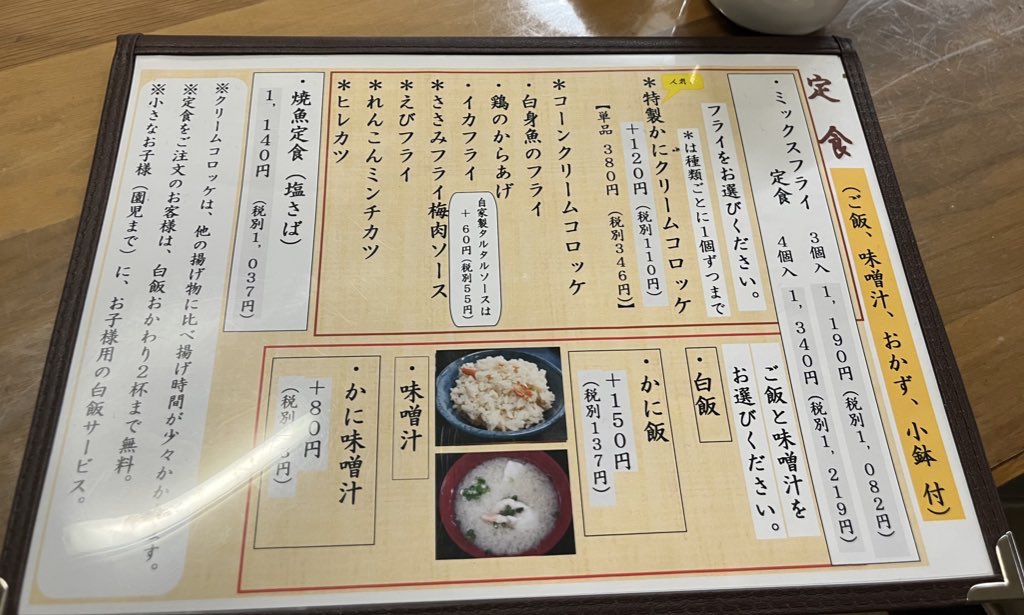 定食
（ご飯、味噌汁、おかず、小鉢 付）
・ミックスフライ定食
3個入 1,190円（税別1,082円）
4個入 1,340円（税別1,219円）
フライをお選びください。
＊は種類ごとに1個ずつまで
人気
＊特製かにクリームコロッケ
＋120円（税別110円）
【単品 380円（税別346円）】
＊コーンクリームコロッケ
・白身魚のフライ
・鶏のからあげ
・イカフライ
自家製タルタルソースは
＋60円（税別55円）
＊ささみフライ梅肉ソース
＊えびフライ
＊れんこんミンチカツ
＊ヒレカツ
ご飯と味噌汁を
お選びください。
・白飯
・かに飯
＋150円
（税別137円）
・味噌汁
・かに味噌汁
＋80円
（税別
・焼魚定食（塩さば）
1,140円（税別1,037円）
※クリームコロッケは、他の揚げ物に比べ揚げ時間が少々かか
※定食をご注文のお客様は、白飯おかわり2杯まで無料。
※小さなお子様（園児まで）に、お子様用の白飯サービス。